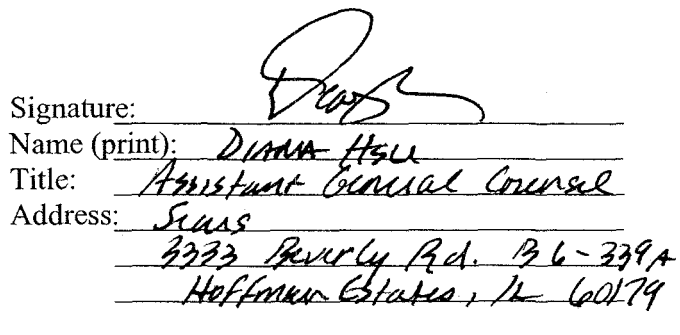 Signature:
Name (print): DIANA HSU
Title: Assistant General Counsel
Address: Sears
3333 Beverly Rd. B6-339A
Hoffman Estates, IL 60179